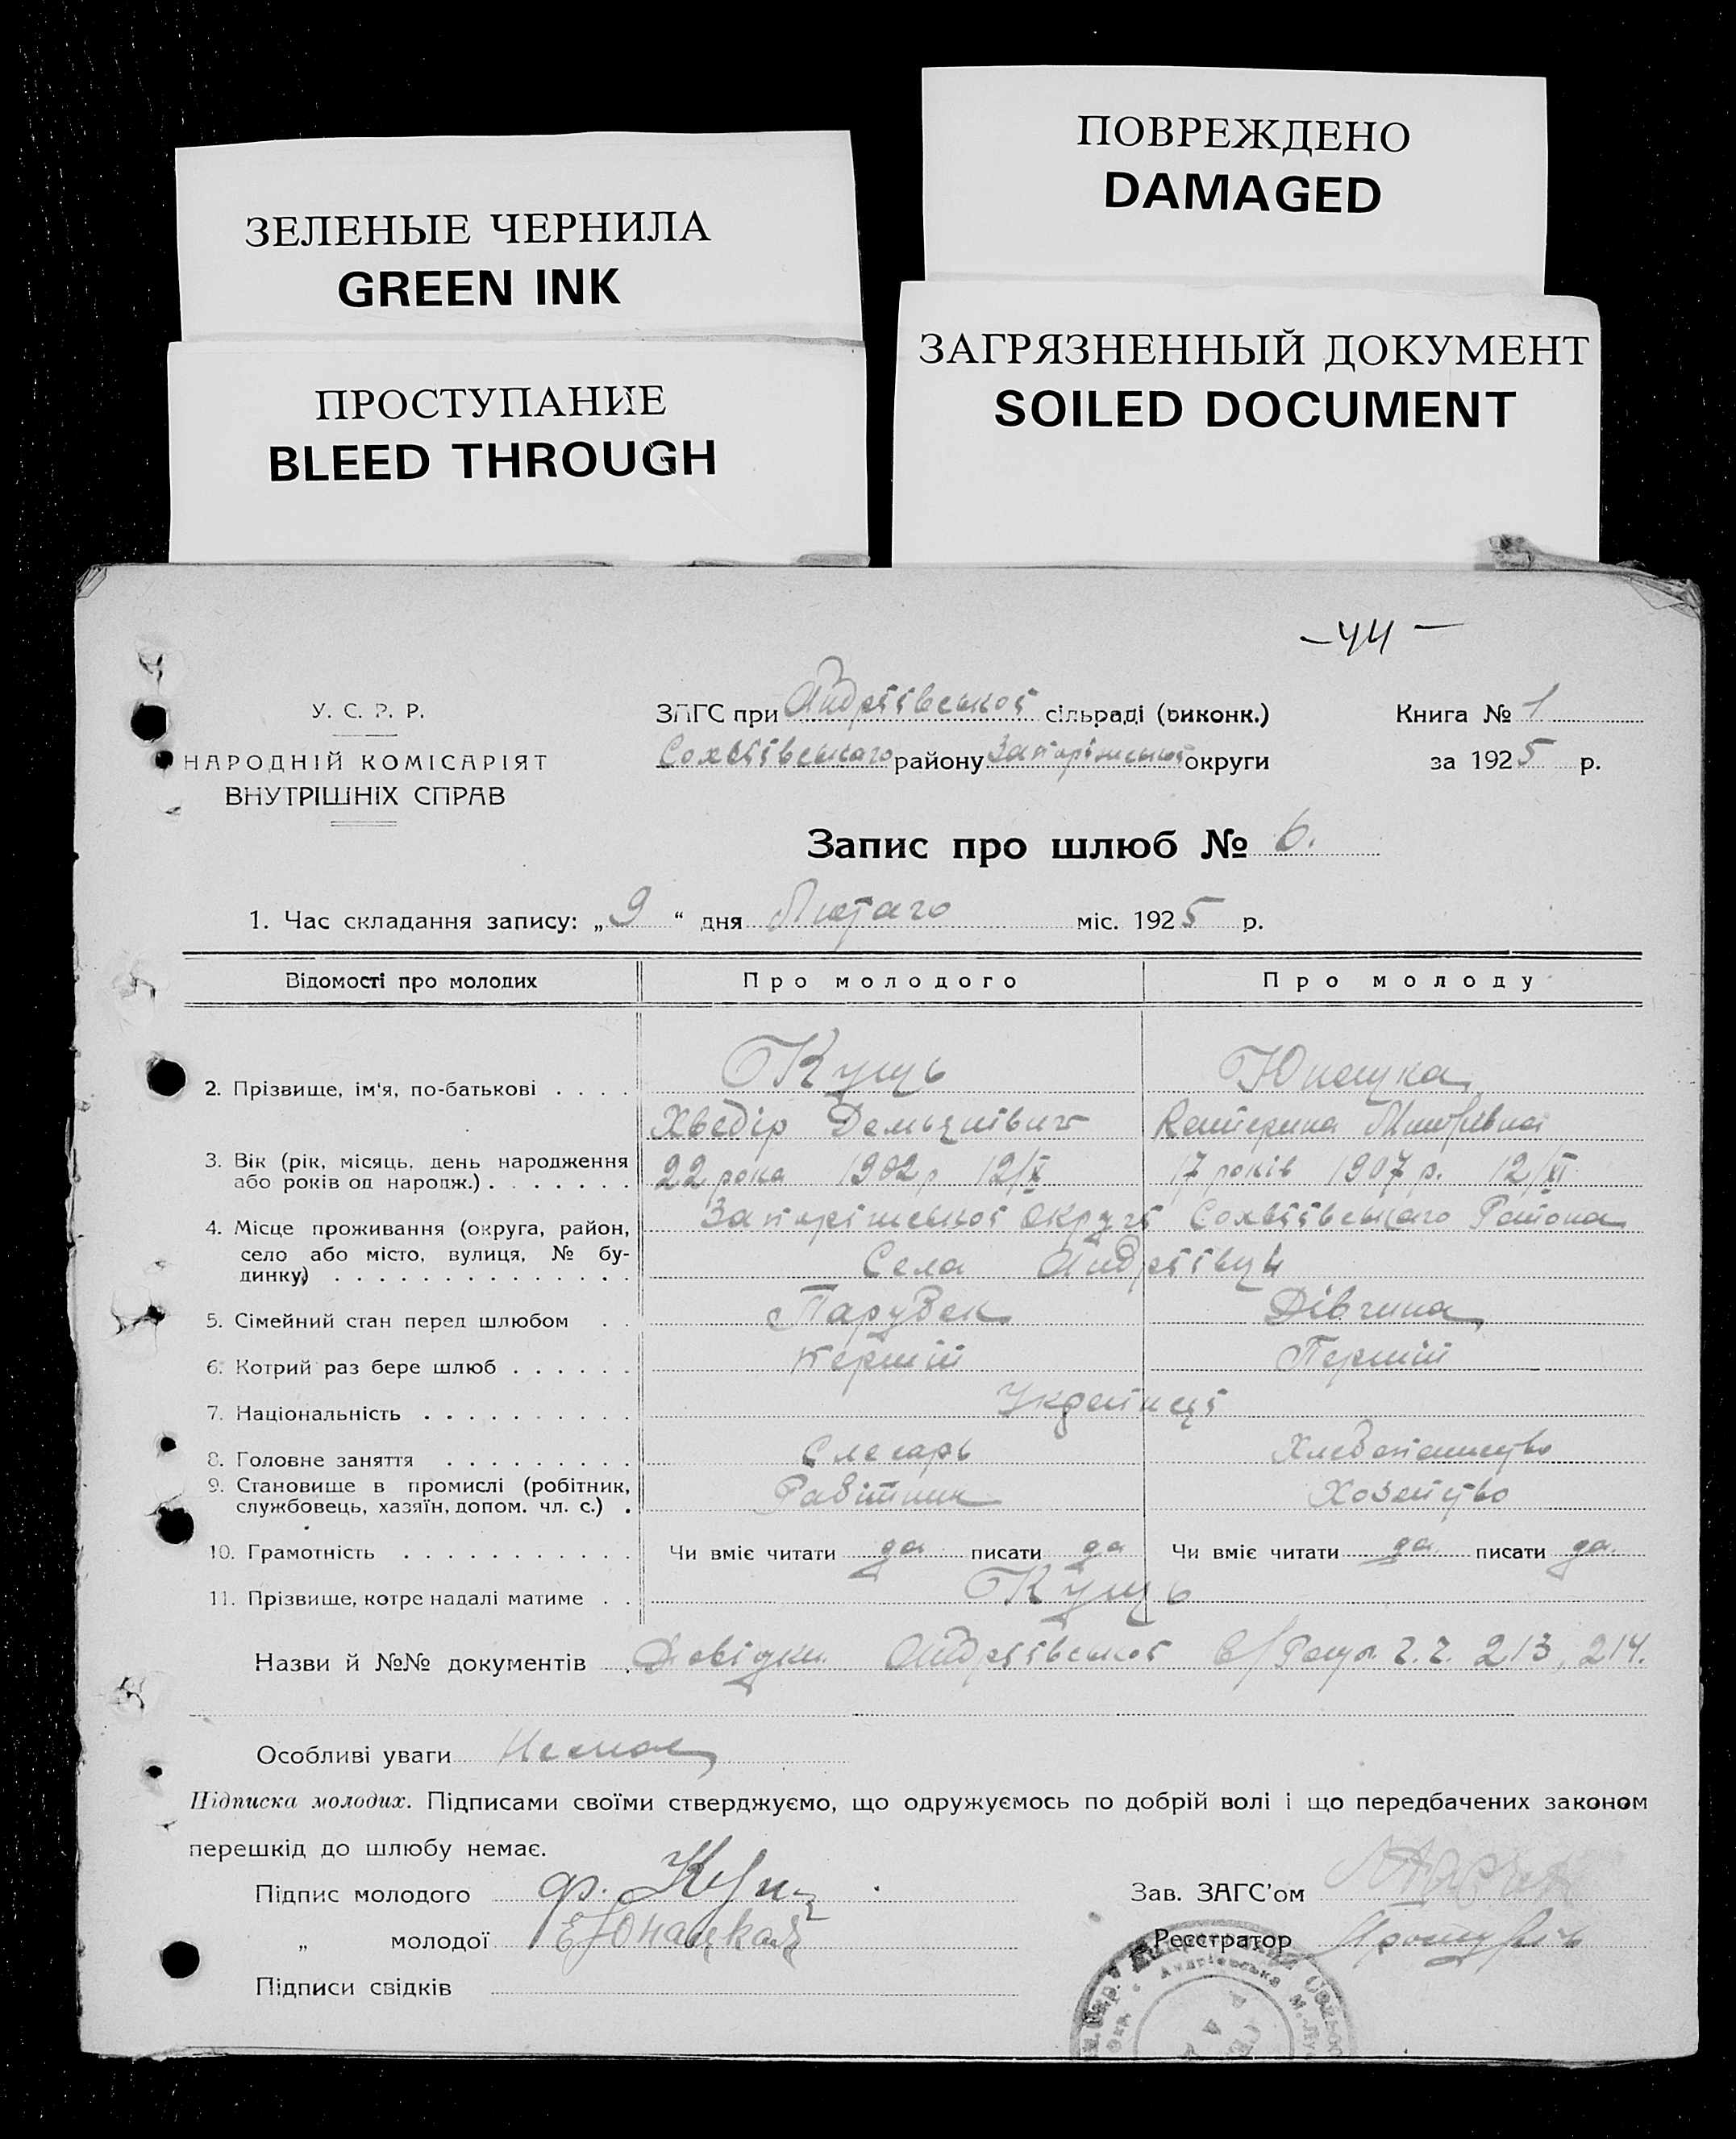 ПОВРЕЖДЕНО
DAMAGED
ЗЕЛЕНЫЕ ЧЕРНИЛА
GREEN INK
ЗАГРЯЗНЕННЫЙ ДОКУМЕНТ
SOILED DOCUMENT
ПРОСТУПАНИЕ
BLEED THROUGH
–44–
У. С. Р. Р.
НАРОДНІЙ КОМІСАРІЯТ
ВНУТРІШНІХ СПРАВ
ЗАГС при Андріївської сільраді (виконк.)
Софіївського району Запоріжської округи
Книга № 1
за 1925 р.
Запис про шлюб № 6.
1. Час складання запису: „9“ дня Лютаго міс. 1925 р.
Відомості про молодих Про молодого Про молоду
2. Прізвище, ім'я, по-батькові . . . . Кущь
Хведір Демьянівич
Катерина
3. Вік (рік, місяць, день народження або років од народж.) . . . . . . . 22 рока 1902 р 12/X 17 років 1907 р. 12/XI
4. Місце проживання (округа, район, село або місто, вулиця, № будинку) . . . . . . . . . . . . . . Запоріжської Округи Района
Села Андріївці
5. Сімейний стан перед шлюбом . . Парубек Дівчина
6. Котрий раз бере шлюб . . . . . . Перший Перший
7. Національність . . . . . . . . . . Українці
8. Головне заняття . . . . . . . . . Слесарь
9. Становище в промислі (робітник, службовець, хазяїн, допом. чл. с.) . Рабітник
10. Грамотність . . . . . . . . . . . Чи вміє читати да писати да Чи вміє читати да писати да.
11. Прізвище, котре надалі матиме . . Кущь
Назви й №№ документів . Довідки Андріївської с/Ради ч.ч. 213, 214.
Особливі уваги Немає
Підписка молодих. Підписами своїми стверджуємо, що одружуємось по добрій волі і що передбачених законом
перешкід до шлюбу немає.
Підпис молодого ф. Кущ
„ молодої
Зав. ЗАГС'ом
Реєстратор
Підписи свідків